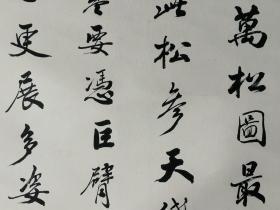 萬松圖最
松參天
要憑巨臂
更展多姿